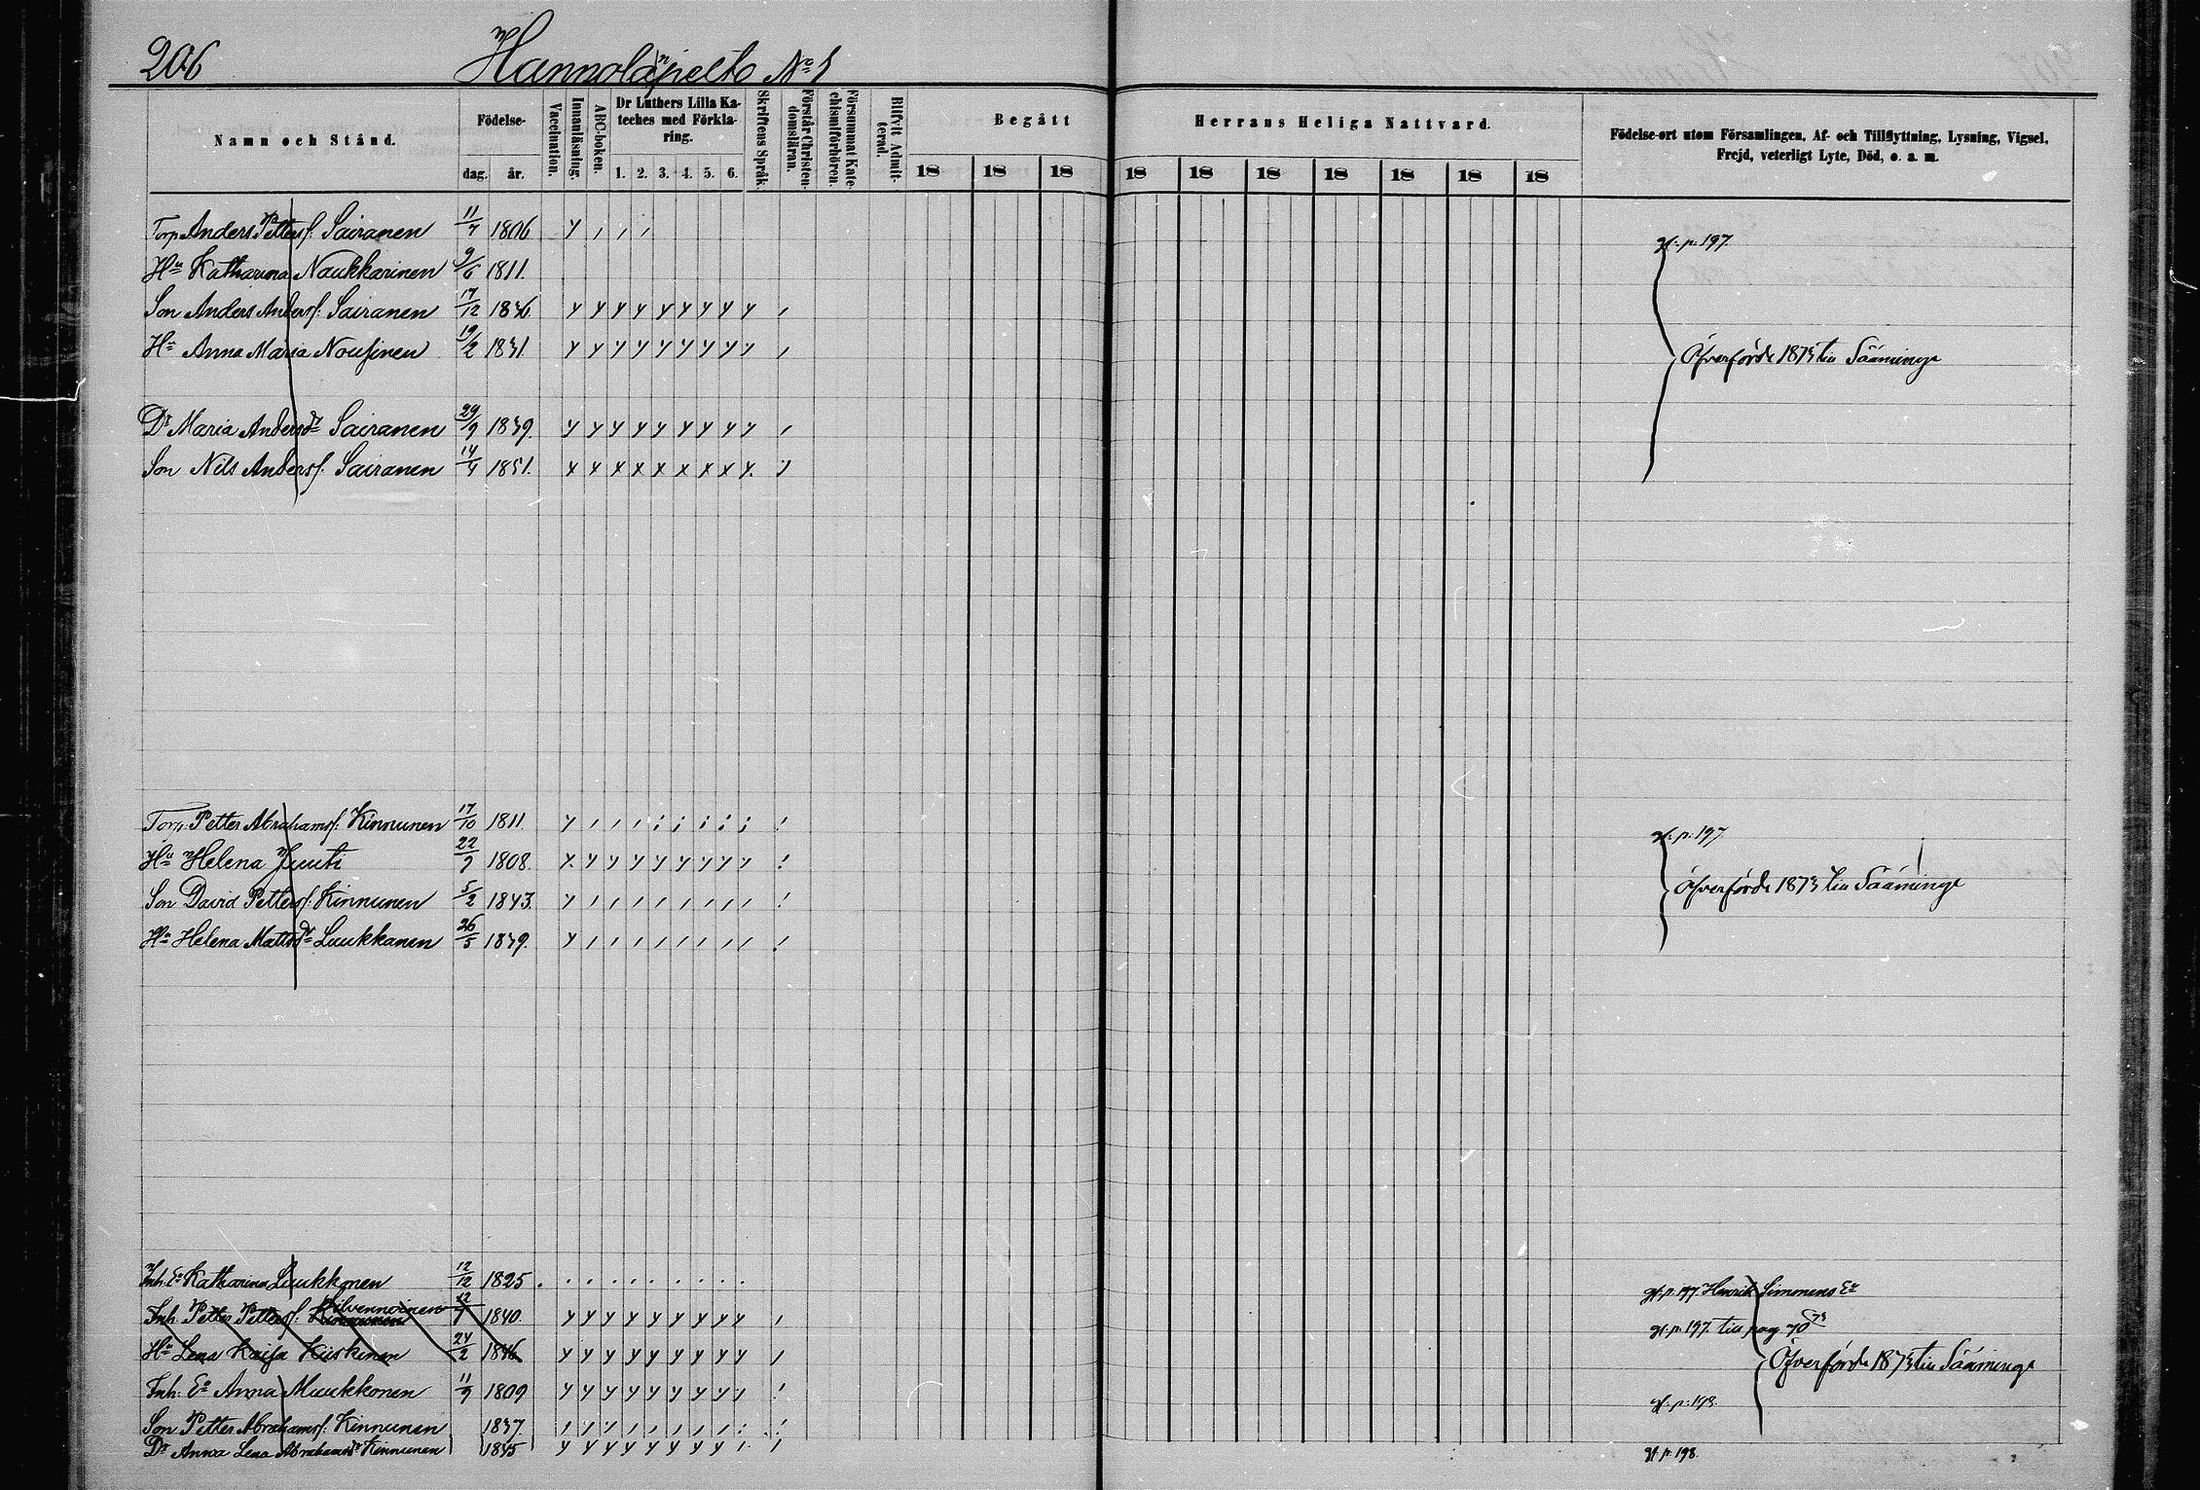 206 Hannolanpelto No 1
Namn och Stånd. Födelse- dag. år. Vaccination. Innanläsning. ABC-boken. Dr Luthers Lilla Kateches med Förklaring. 1. 2. 3. 4. 5. 6. Skriftens Språk. Förstår Christendomsläran. Försummat Katechismiförhören. Blifvit Admitterad. Begått Herrans Heliga Nattvard. Födelse-ort utom Församlingen, Af- och Tillflyttning, Lysning, Vigsel, Frejd, veterligt Lyte, Död, o. a. m.
18 18 18 18 18 18 18 18 18 18
Torp. Anders Petterss: Sairanen 11/7 1806 p. 197.
Hu Katharina Naukkarinen 9/6 1811.
Son Anders Anderss: Sairanen 17/12 1836.
Hu Anna Maria Nousinen 19/2 1831 Öfverförde 1873 till Sääminge
Dr Maria Andersdr Sairanen 29/9 1839.
Son Nils Anderss: Sairanen 14/4 1851.
Torp. Petter Abrahamss: Kinnunen 17/10 1811. p. 197
Hu Helena Juuti 22/9 1808.
Son David Petterss: Kinnunen 5/2 1843. Öfverförde 1873 till Sääminge
Hu Helena Mattsdr Luukkanen 26/5 1839.
Inh. Ea Katharina Luukkonen 12/12 1825. p. 197. Henrik Simonens Ea
Inh. Petter Petterss: Silvennoinen 12/7 1840. p. 197. till pag 70
Hu Lena Kaisa Kiiskinen 24/2 1846 Öfverförde 1873 till Sääminge
Inh: Ea Anna Muukkonen 11/9 1809 p. 198.
Son Petter Abrahamss: Kinnunen 1837.
Dr Anna Lena Abrahamsdr Kinnunen 1845 p. 198.